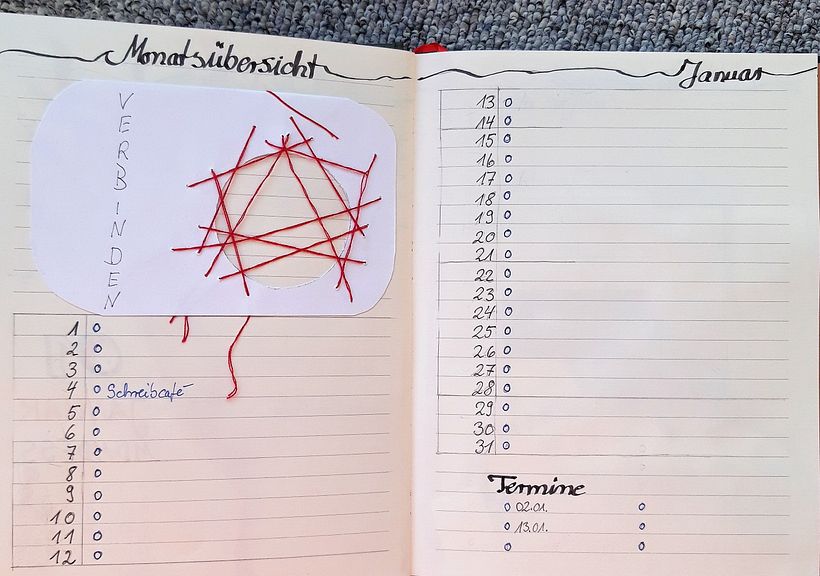 Monatsübersicht
VERBINDEN
1
2
3
4 Schreibcafé
5
6
7
8
9
10
11
12
Januar
13
14
15
16
17
18
19
20
21
22
23
24
25
26
27
28
29
30
31
Termine
02.01.
13.01.